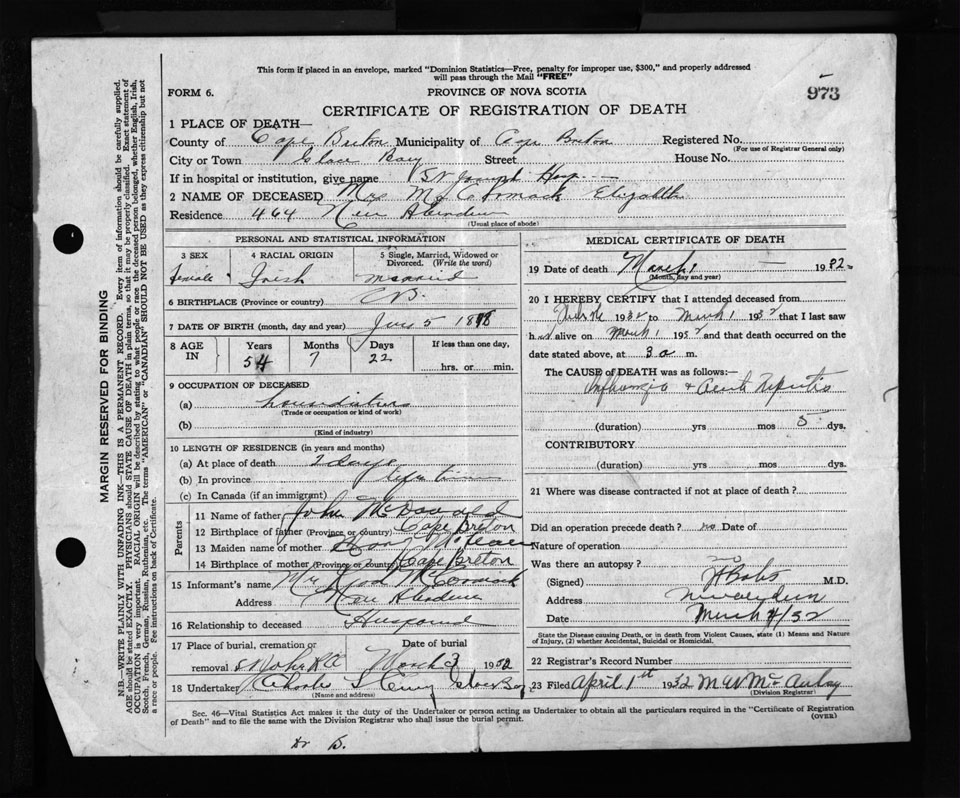 This form if placed in an envelope, marked "Dominion Statistics—Free, penalty for improper use, $300," and properly addressed
will pass through the Mail "FREE"
FORM 6.
PROVINCE OF NOVA SCOTIA
973
CERTIFICATE OF REGISTRATION OF DEATH
1 PLACE OF DEATH—
County of Cape Breton Municipality of Cape Breton Registered No.
(For use of Registrar General only)
City or Town Glace Bay Street House No.
If in hospital or institution, give name St Joseph Hosp
2 NAME OF DECEASED Mrs McCormack Elizabeth
Residence 464 New Aberdeen
(Usual place of abode)
PERSONAL AND STATISTICAL INFORMATION
3 SEX 4 RACIAL ORIGIN 5 Single, Married, Widowed or Divorced. (Write the word)
Female Irish married
6 BIRTHPLACE (Province or country) CB.
7 DATE OF BIRTH (month, day and year) 5
8 AGE IN Years Months Days If less than one day,
54 7 22 hrs. or min.
9 OCCUPATION OF DECEASED
(a)
(Trade or occupation or kind of work)
(b)
(Kind of industry)
10 LENGTH OF RESIDENCE (in years and months)
(a) At place of death 2 days
(b) In province life time
(c) In Canada (if an immigrant)
Parents
11 Name of father John McDonald
12 Birthplace of father (Province or country) Cape Breton
13 Maiden name of mother McLean
14 Birthplace of mother (Province or country) Cape Breton
15 Informant's name Mr McCormack
Address New Aberdeen
16 Relationship to deceased Husband
17 Place of burial, cremation or removal Date of burial
March 3 1932
18 Undertaker Charles Curry Glace Bay
(Name and address)
MEDICAL CERTIFICATE OF DEATH
19 Date of death March 1 1932
(Month, day and year)
20 I HEREBY CERTIFY that I attended deceased from
1932 to March 1 1932 that I last saw
h er alive on March 1 1932 and that death occurred on
date stated above, at 3 a m.
The CAUSE of DEATH was as follows:
Influenza + Acute Nephritis
(duration) yrs mos 5 dys.
CONTRIBUTORY
(duration) yrs mos dys.
21 Where was disease contracted if not at place of death?
Did an operation precede death? no Date of
Nature of operation
Was there an autopsy? no
(Signed) M.D.
Address New Aberdeen
Date March 4/32
State the Disease causing Death, or in death from Violent Causes, state (1) Means and Nature
of Injury, (2) whether Accidental, Suicidal or Homicidal.
22 Registrar's Record Number
23 Filed April 1st 1932 M W McAulay
(Division Registrar)
Sec. 46—Vital Statistics Act makes it the duty of the Undertaker or person acting as Undertaker to obtain all the particulars required in the "Certificate of Registration
of Death" and to file the same with the Division Registrar who shall issue the burial permit.
(OVER)
MARGIN RESERVED FOR BINDING
N.B.—WRITE PLAINLY WITH UNFADING INK—THIS IS A PERMANENT RECORD. Every item of information should be carefully supplied.
AGE should be stated EXACTLY. PHYSICIANS should STATE CAUSE OF DEATH in plain terms, so that it may be properly classified. Exact statement of
OCCUPATION is very important. RACIAL ORIGIN will be described by stating to what people or race the deceased person belonged, whether English, Irish,
Scotch, French, German, Russian, Ruthenian, etc. The terms "AMERICAN" or "CANADIAN" SHOULD NOT BE USED as they express citizenship but not
a race or people. See instructions on back of Certificate.